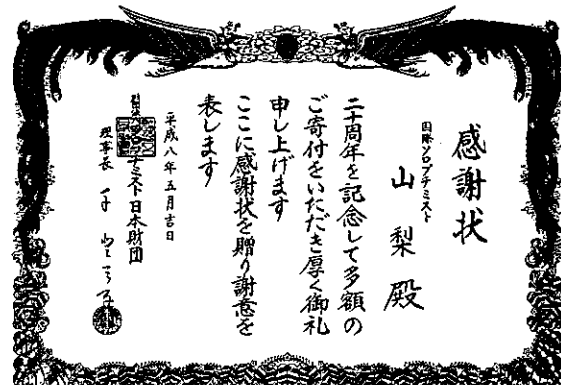 感謝状
国際ソロプチミスト
山梨殿
二十周年を記念して多額の
ご寄付をいただき厚く御礼
申し上げます
ここに感謝状を贈り謝意を
表します
平成八年五月吉日
ミスト日本財団
理事長 千